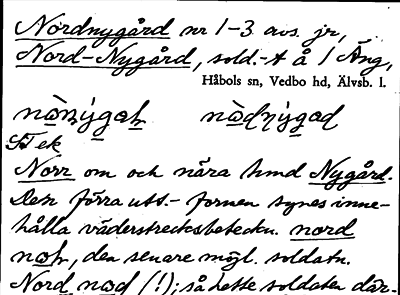 Nordnygård nr 1-3 avs. jr,
Nord-Nygård, sold.-t å 1 Äng,
Håbols sn, Vedbo hd, Älvsb. l.
Tek
Norr om och nära hmd Nygård.
Den förra utt.-formen synes inne-
hålla väderstrecksbeteckn. nord
, den senare möjl. soldatn.
Nord nɷd (!); så hette soldaten där-